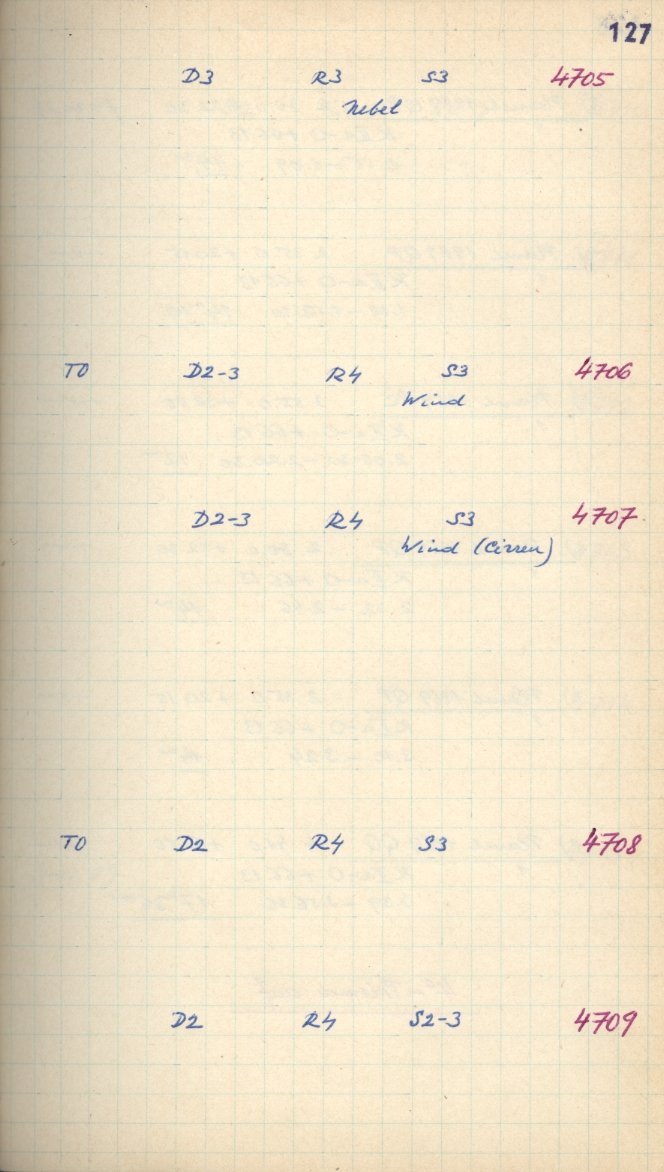 127
D3 R3 S3 4705
Nebel
T0 D2-3 R4 S3 4706
Wind
D2-3 R4 S3 4707
Wind (Cirren)
T0 D2 R4 S3 4708
D2 R4 S2-3 4709